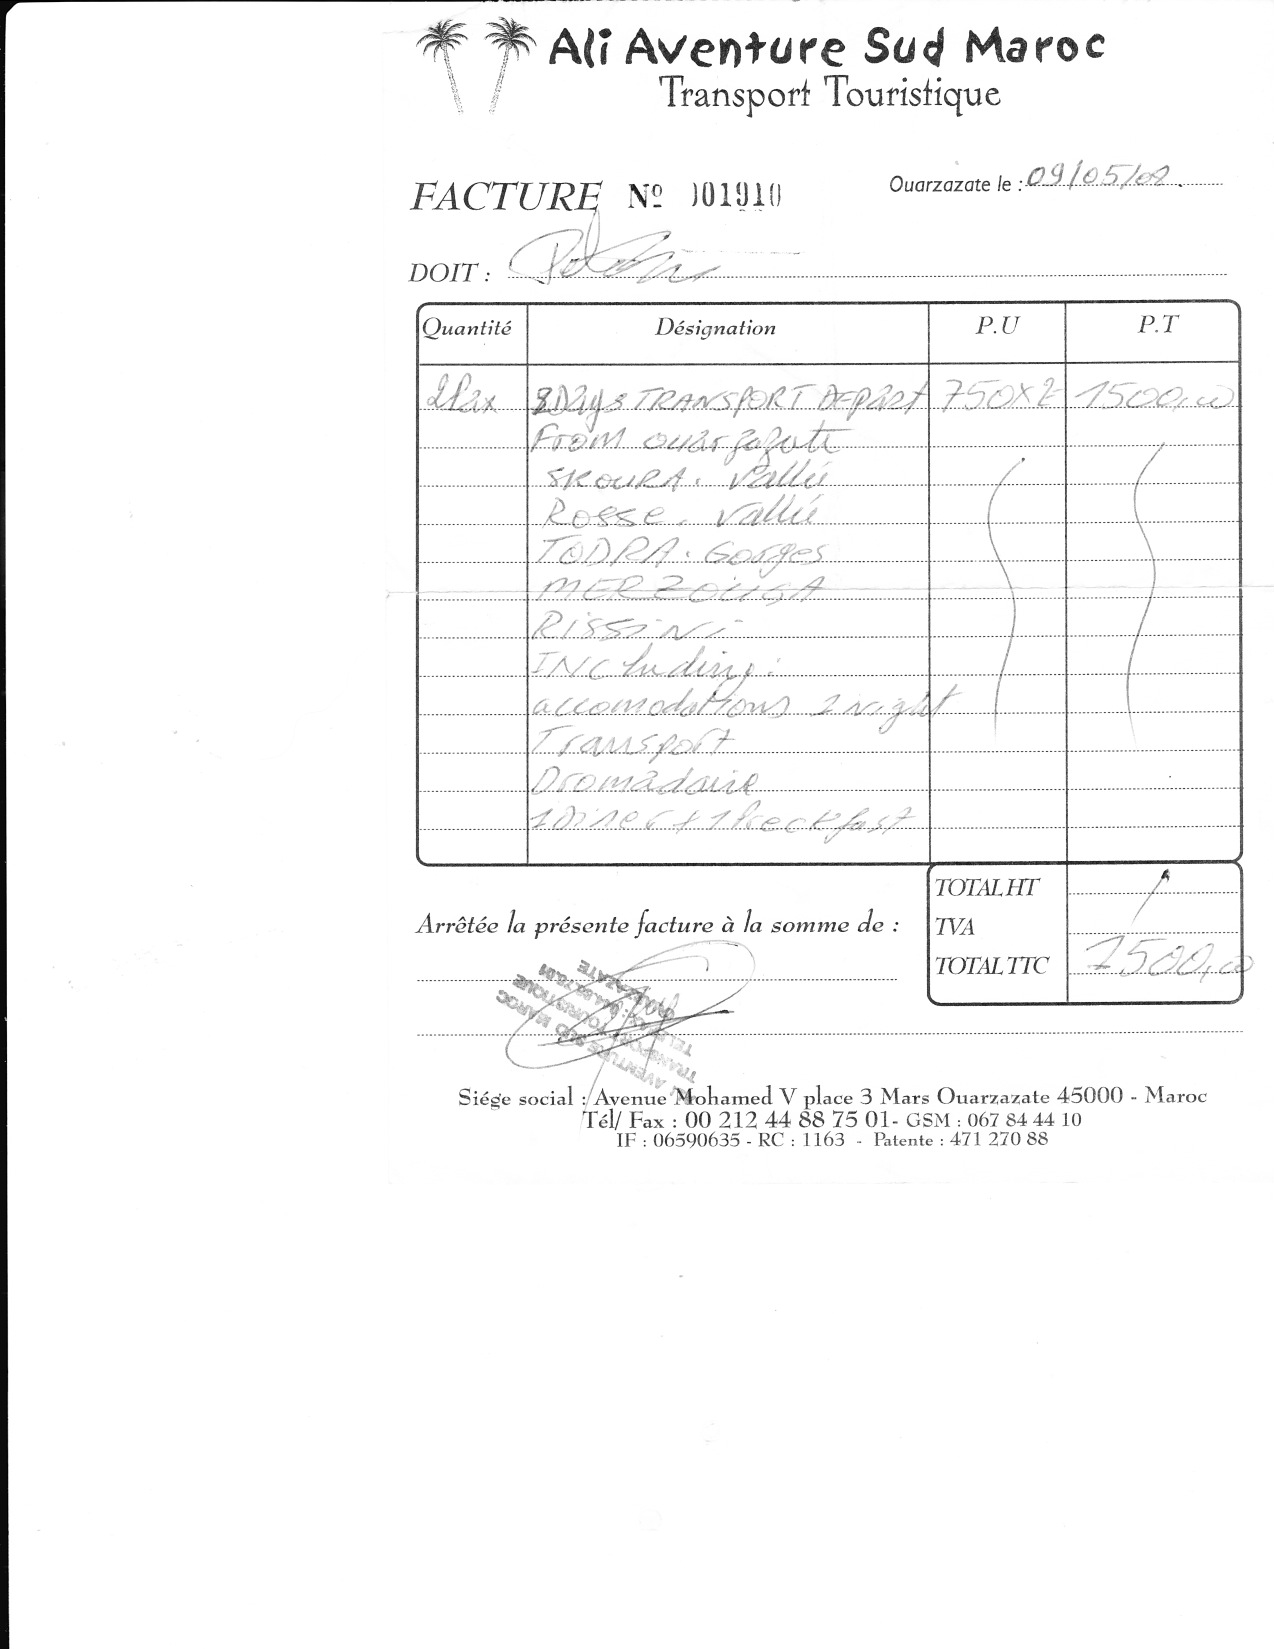 Ali Aventure Sud Maroc
Transport Touristique
FACTURE Nº 001910
Ouarzazate le : 09/05/02
DOIT :
Quantité Désignation P.U P.T
2Pax Days TRANSPORT DEPART 750x2 1500,00
From ouarzazate
SKOURA. Vallée
Rosse. Vallée
TODRA. Gorges
MERZOUGA
RISSINi
INCluding:
accomodations 1 night
Transport
Dromadaire
1 Diner + 1 breckfast
TOTAL HT
Arrêtée la présente facture à la somme de : TVA
TOTAL TTC 1500,00
AVENTURE SUD MAROC
TRANSPORT TOURISTIQUE
Siége social : Avenue Mohamed V place 3 Mars Ouarzazate 45000 - Maroc
Tél/ Fax : 00 212 44 88 75 01- GSM : 067 84 44 10
IF : 06590635 - RC : 1163 - Patente : 471 270 88